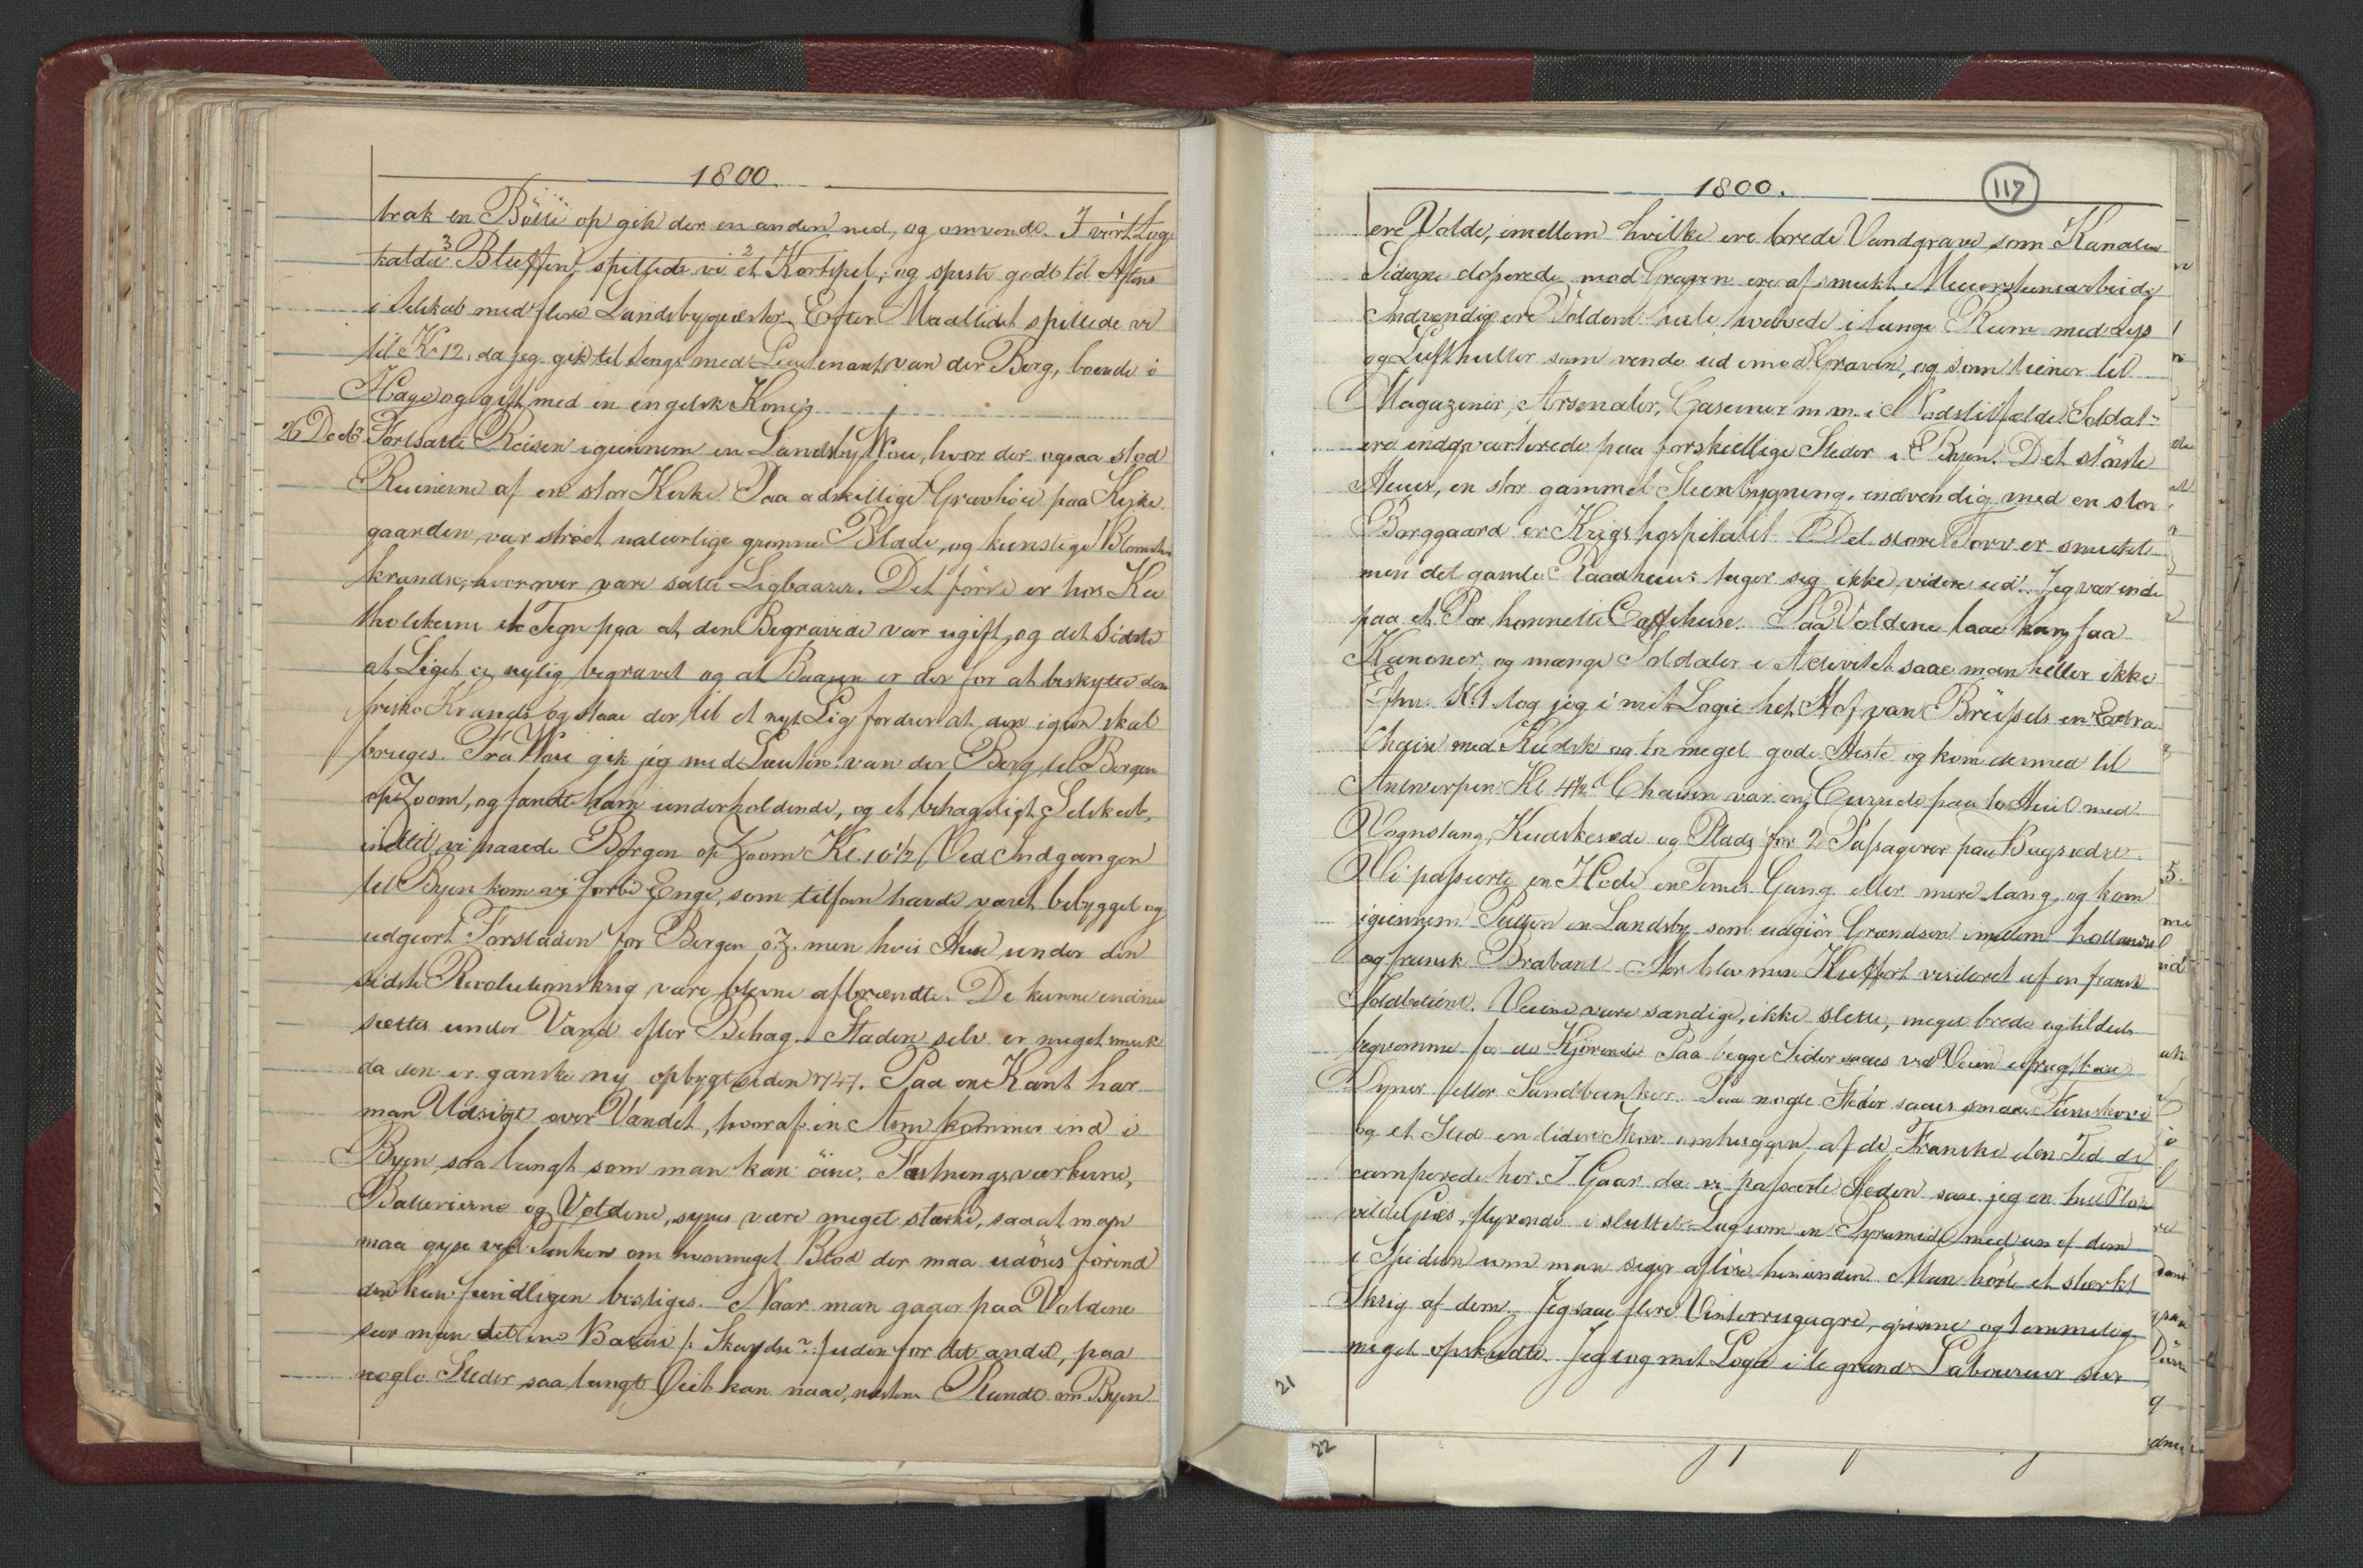 1800.
trak en Bøtte op gik der en anden ned, og omvendt. I vort Log
kaldte 3 Bluffen spillede vi 2 et Kortspil, og spiste godt til Aftens
i Selskab med flere Landsbygiester. Efter Maaltidet spillede vi
til Kl 12, da jeg gik til Sengs med Lieutenant van der Berg, boende i
Hage og gift med en engelsk Kone.
26 Decb. Fortsatte Reisen igiennem en Landsby Wou, hvor der ogsaa stod
Ruinerne af en stor Kirke. Paa adskillige Gravhöie paa Kirke
gaarden var ströet naturlige grønne Blade, og kunstige Blomster
krandse, hvorover vare satte Ligbaarer. Det förste er hos Ka
tholikerne et Tegn paa at den Begravede var ugift, og det Sidste
at Liget er nylig begravet og at Baaren er der for at beskytte den
friske Krands og staae der til et nyt Lig fordrer at den igien skal
bruges. Fra Wou gik jeg med Lieuten. van der Berg til Bergen
op Zoom, og fandt ham underholdende, og et behageligt Selskab,
indtil vi naaede Bergen op Zoom Kl. 10 1/2. Ved Indgangen
til Byen kom vi forbi Enge, som tilforn havde været bebygget og
udgiort Forstaden for Bergen o.Z. men hvis Huse under den
sidste Revolutionskrig vare blevne afbrændte. De kunne endnu
sættes under Vand efter Behag. Staden selv er meget smuk
da den er ganske ny opbygt siden 1747. Paa en Kant har
man Udsigt over Vandet, hvoraf en Arm kommer ind i
Byen, saa langt som man kan öine. Fæstningsværkerne,
Batterierne og Voldene, synes være meget stærke, saa at man
maa gyse ved Tanken om hvormeget Blod der maa udöses förend
den kan fiendligen bestiges. Naar man gaaer paa Voldene
seer man det ene Batteri /: Skandse :/ uden for det andet, paa
nogle Steder saa langt Öiet kan naae, næsten Rundt om Byen
1800.
117
ere Volde, imellem hvilke ere brede Vandgrave som Kanaler
Siderne doserede mod Graven ere af smukt Muurstensarbeide
Indvendig ere Voldene hule hvelvede i lange Rum med Lys
og Lufthuller som vende ud imod Graven, og som tiener til
Magaziner, Arsenaler, Caserner m.m. i Nødstilfælde. Soldat-
ere indqvarterede paa forskiellige Steder i Byen. Det störste
Huus, en stor gammel Steenbygning, indvendig med en stor
Borggaard er Krigshospitalet. Det store Torv er smukt
men det gamle Raadhuus tager sig ikke videre ud. Jeg var inde
paa et Par honnette Caffehuse. Paa Voldene laae kun faa
Kanoner, og mange Soldater i Activitet saae man heller ikke
Efrm. Kl. 1 tog jeg i mit Logie het Hof van Brüssels en Extra
Chaise med Kudsk og to meget gode Heste og kom dermed til
Antwerpen Kl 4 1/2. Chaisen var en Curriole paa to Hiul med
Vognstang, Kudskesæde og Plads for 2 Passagerer paa Bagsædet.
Vi passerte en Hede en Times Gang eller mere lang, og kom
igiennem Putten en Landsby som udgiör Grændsen imellem hollandsk
og fransk Brabant. Her blev min Kuffert visiteret af en fransk
Toldbetient. Veiene vare sandige, ikke slette, meget brede og tildeels
beqvemme for de Kjörende. Paa begge Sider saaes ved Veien ufrugtbare
Dyner eller Sandbanker. Paa nogle Steder saaes smaa Furuskove
og et Sted en liden Skov omhuggen af de Franske den Tid de
camperede her. I Gaar da vi passerte Heden saae jeg en heel Flok
vilde Gies, flyvende i sluttet Tog som en Pyramide med en af dem
i Spidsen som man siger aflöse hinanden. Man hörte et stærkt
Skrig af dem. Jeg saae flere Vinterrugagre, grönne og temmelig
meget opskudte. Jeg tog mit Logie i le grand Laboureur sur
21
22